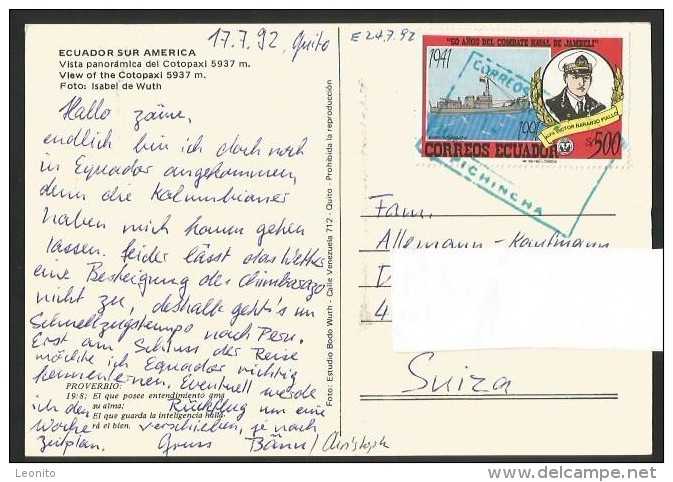 17.7.92, Quito
ECUADOR SUR AMERICA
Vista panorámica del Cotopaxi 5937 m.
View of the Cotopaxi 5937 m.
Foto: Isabel de Wuth
Hallo zäme,
endlich bin ich doch noch
in Equador angekommen,
denn die Kolumbianer
haben mich kaum gehen
lassen. Leider lässt das Wetter
eine Besteigung des Chimborazo
nicht zu, deshalb geht's im
Schnellzugstempo nach Peru.
Erst am Schluss der Reise
möchte ich Equador richtig
kennenlernen. Eventuell werde
ich den Rückflug um eine
Woche verschieben, je nach
Zeitplan. Gruss Christoph
PROVERBIO:
19:8; El que posee entendimiento ama
su alma;
El que guarda la inteligencia halla-
rá el bien.
Foto: Estudio Bodo Wuth - Calle Venezuela 712 - Quito - Prohibida la reproducción
E 24.7.92
"50 AÑOS DEL COMBATE NAVAL DE JAMBELI"
1941
1991
VICTOR NARANJO FIALLO
CORREOS ECUADOR S/.500
CORREOS
PICHINCHA
Fam.
Allemann-Kaufmann
D
4
Suiza
Leonito
delcampe.net